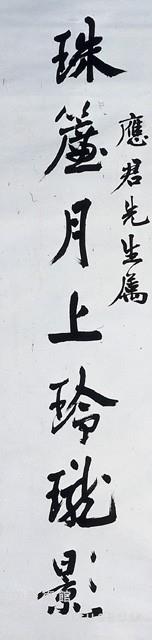 應君先生屬
珠簾月上玲瓏影